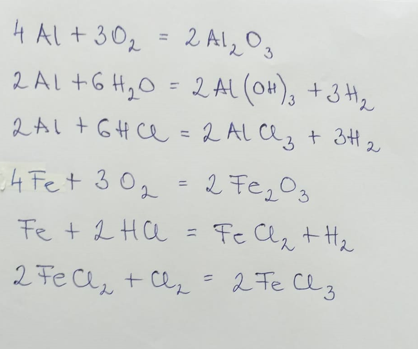 4Al + 3O₂ = 2Al₂O₃
2Al + 6H₂O = 2Al(OH)₃ + 3H₂
2Al + 6HCl = 2AlCl₃ + 3H₂
4Fe + 3O₂ = 2Fe₂O₃
Fe + 2HCl = FeCl₂ + H₂
2FeCl₂ + Cl₂ = 2FeCl₃